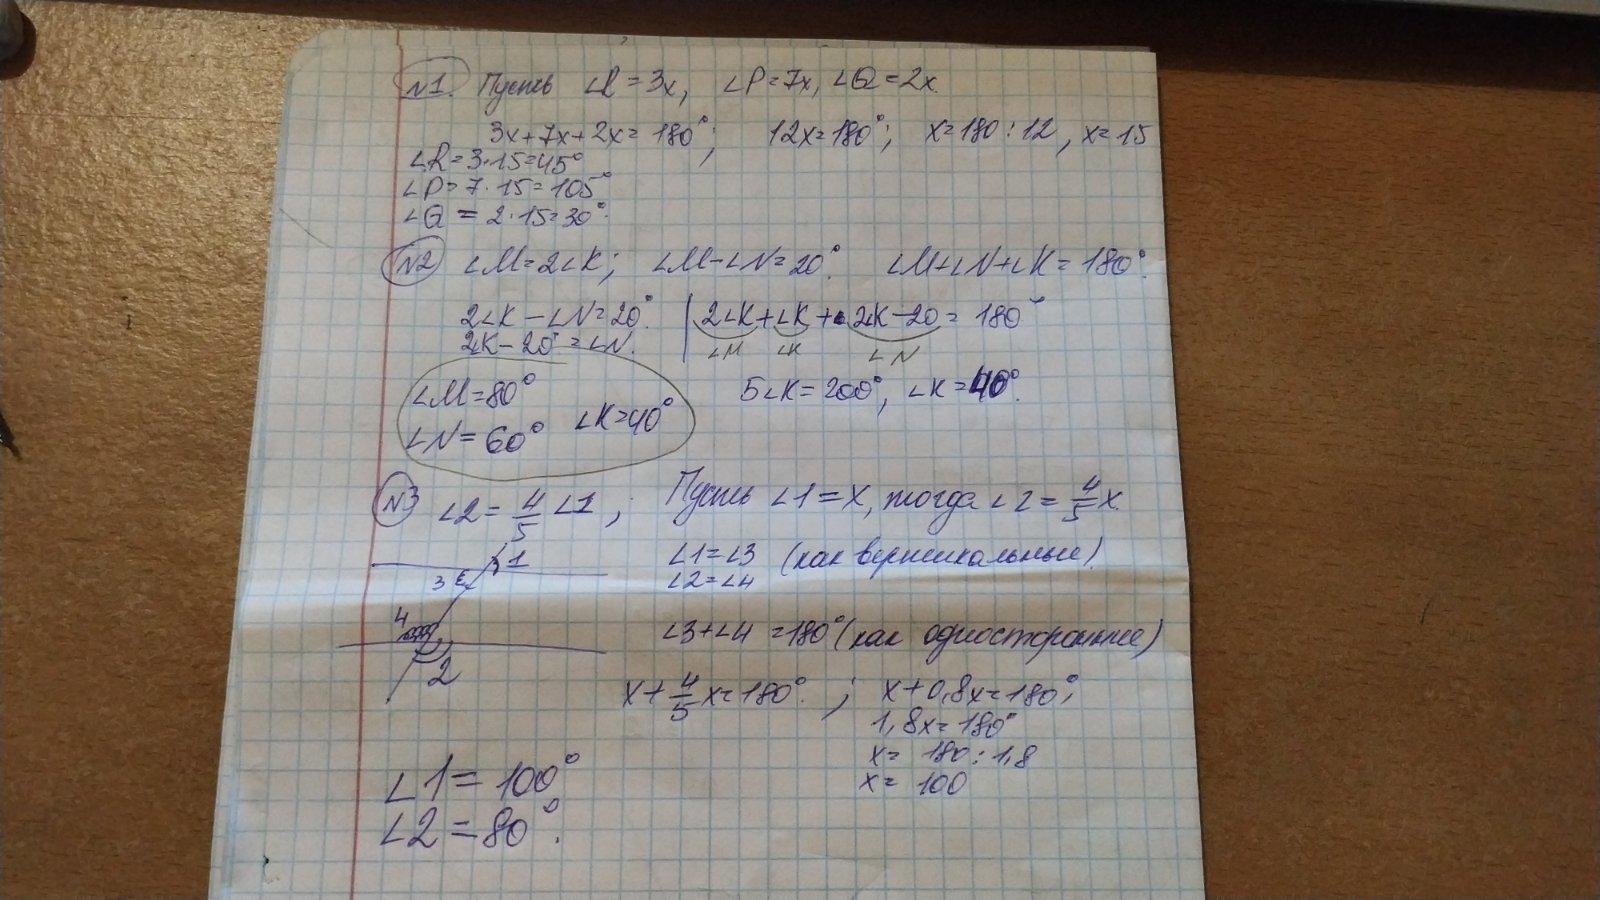 №1. Пусть ∠R=3x, ∠P=7x, ∠Q=2x.
3x+7x+2x=180°; 12x=180°; x=180:12, x=15
∠R=3·15=45°
∠P=7·15=105°
∠Q=2·15=30°.
№2 ∠M=2∠K; ∠M-∠N=20°. ∠M+∠N+∠K=180°.
2∠K-∠N=20°. | 2∠K+∠K+2∠K-20=180°
2∠K-20°=∠N. ∠M ∠K ∠N
∠M=80° 5∠K=200°, ∠K=40°.
∠N=60° ∠K=40°
№3 ∠2=4/5 ∠1; Пусть ∠1=x, тогда ∠2=4/5x.
1 ∠1=∠3 (как вертикальные)
3 ∠2=∠4
4 ∠3+∠4=180° (как односторонние)
2 x+4/5x=180°; x+0,8x=180°;
1,8x=180°
x=180:1,8
x=100
∠1=100°
∠2=80°.